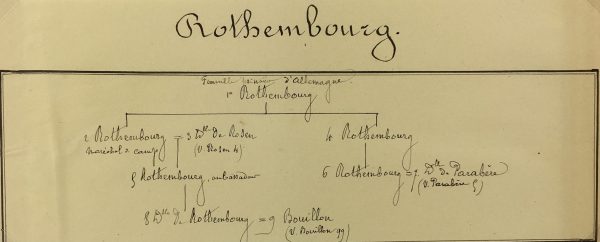 Rothembourg.
Famille d'Allemagne.
1 Rothembourg
2 Rothembourg = 3 Dlle de Rosen
4 Rothembourg
maréchal de camp
(V. Rosen 4)
5 Rothembourg, ambassadeur
6 Rothembourg = 7 Dlle de Parabère
(V. Parabère 5)
8 Dlle de Rothembourg = 9 Bouillon
(V. Bouillon 49)